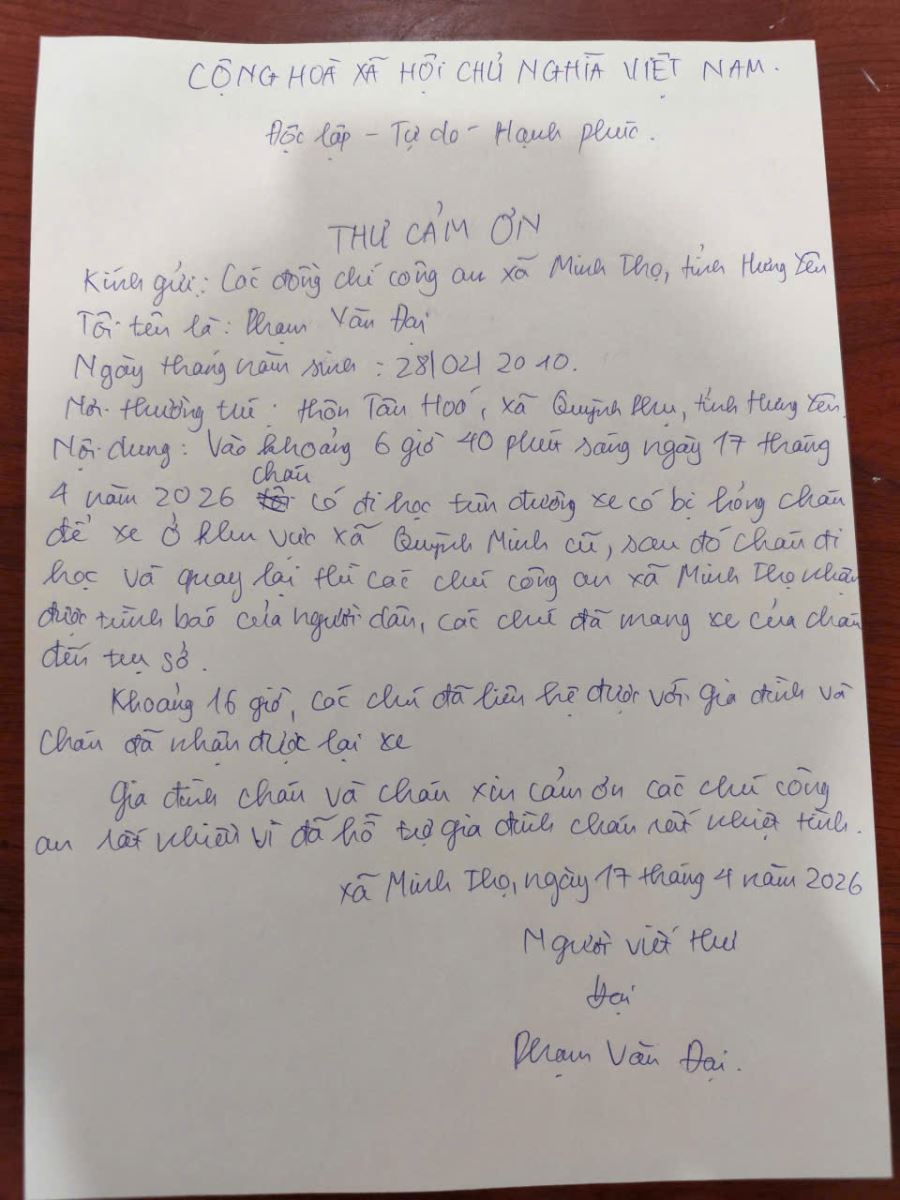 CỘNG HOÀ XÃ HỘI CHỦ NGHĨA VIỆT NAM.
Độc lập - Tự do - Hạnh phúc.
THƯ CẢM ƠN
Kính gửi: Các đồng chí công an xã Minh Thọ, tỉnh Hưng Yên
Tôi tên là: Phạm Văn Đại
Ngày tháng năm sinh: 28/02/2010.
Nơi thường trú: thôn Tân Hoá, xã Quỳnh Phụ, tỉnh Hưng Yên.
Nội dung: Vào khoảng 6 giờ 40 phút sáng ngày 17 tháng
4 năm 2026 cháu có đi học trên đường xe có bị hỏng cháu
để xe ở khu vực xã Quỳnh Minh cũ, sau đó cháu đi
học và quay lại thì các chú công an xã Minh Thọ nhận
được trình báo của người dân, các chú đã mang xe của cháu
đến trụ sở.
Khoảng 16 giờ, các chú đã liên hệ được với gia đình và
cháu đã nhận được lại xe
Gia đình cháu và cháu xin cảm ơn các chú công
an rất nhiều vì đã hỗ trợ gia đình cháu rất nhiệt tình.
xã Minh Thọ, ngày 17 tháng 4 năm 2026
Người viết thư
Đại
Phạm Văn Đại.